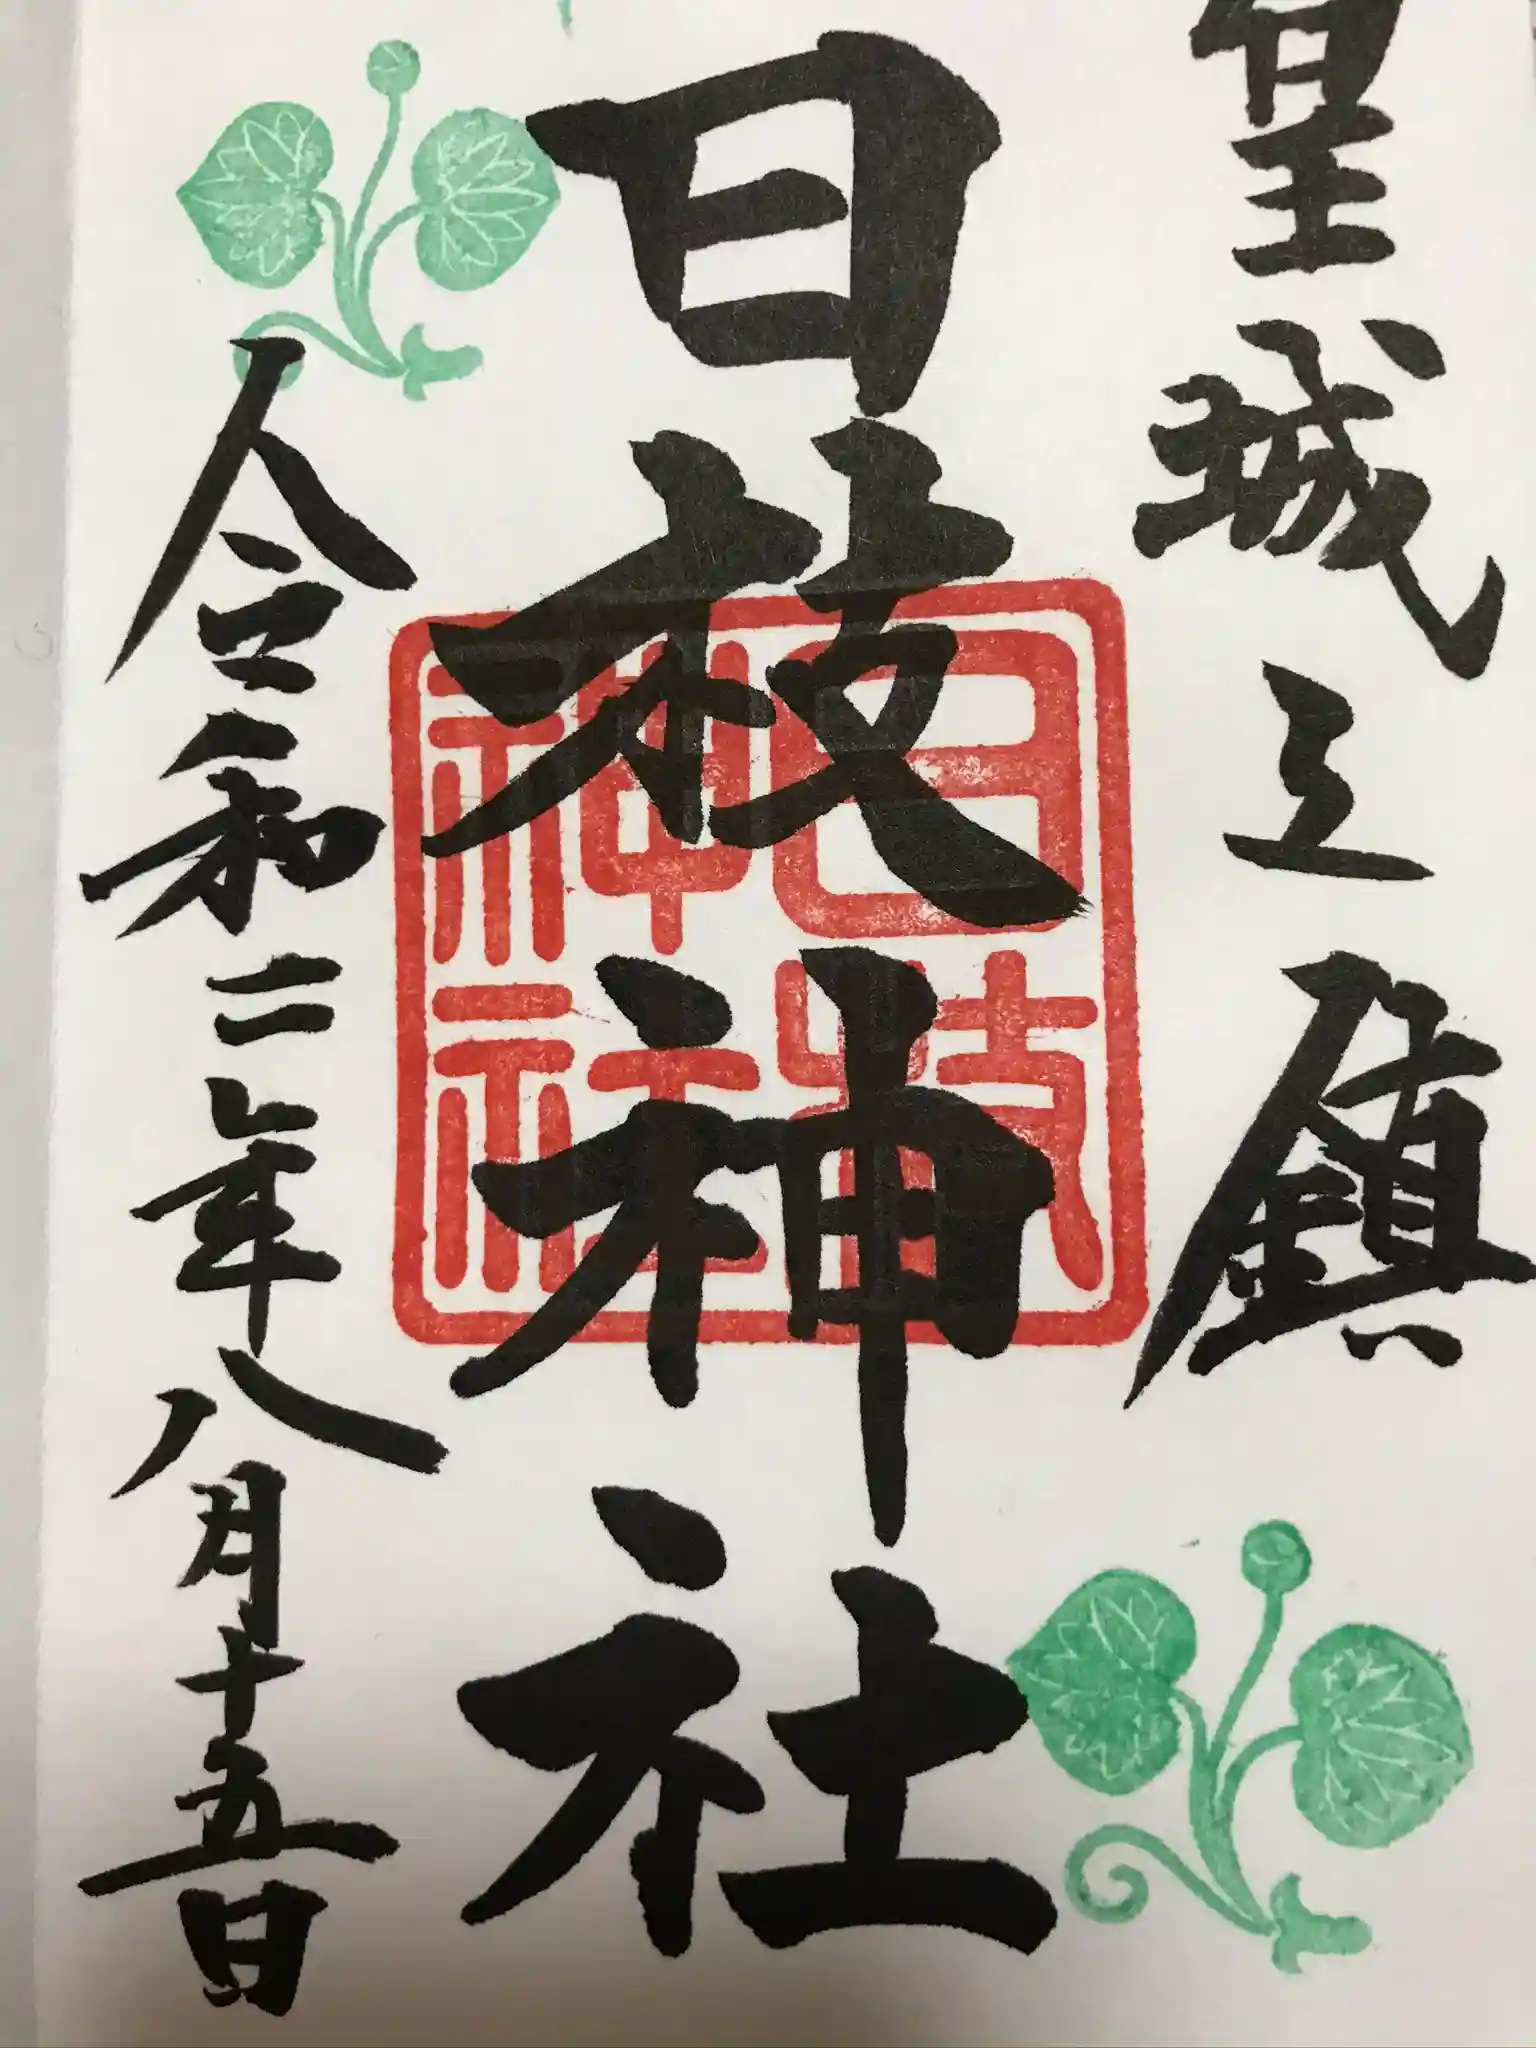 皇城之鎮
日枝神社
日枝
神社
令和二年八月十五日